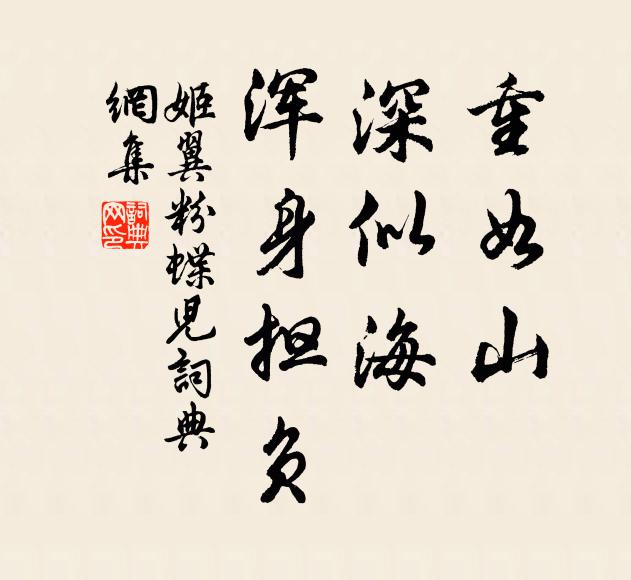 重如山
深似海
浑身担负
姬翼粉蝶儿詞典
網集
詞典
网印